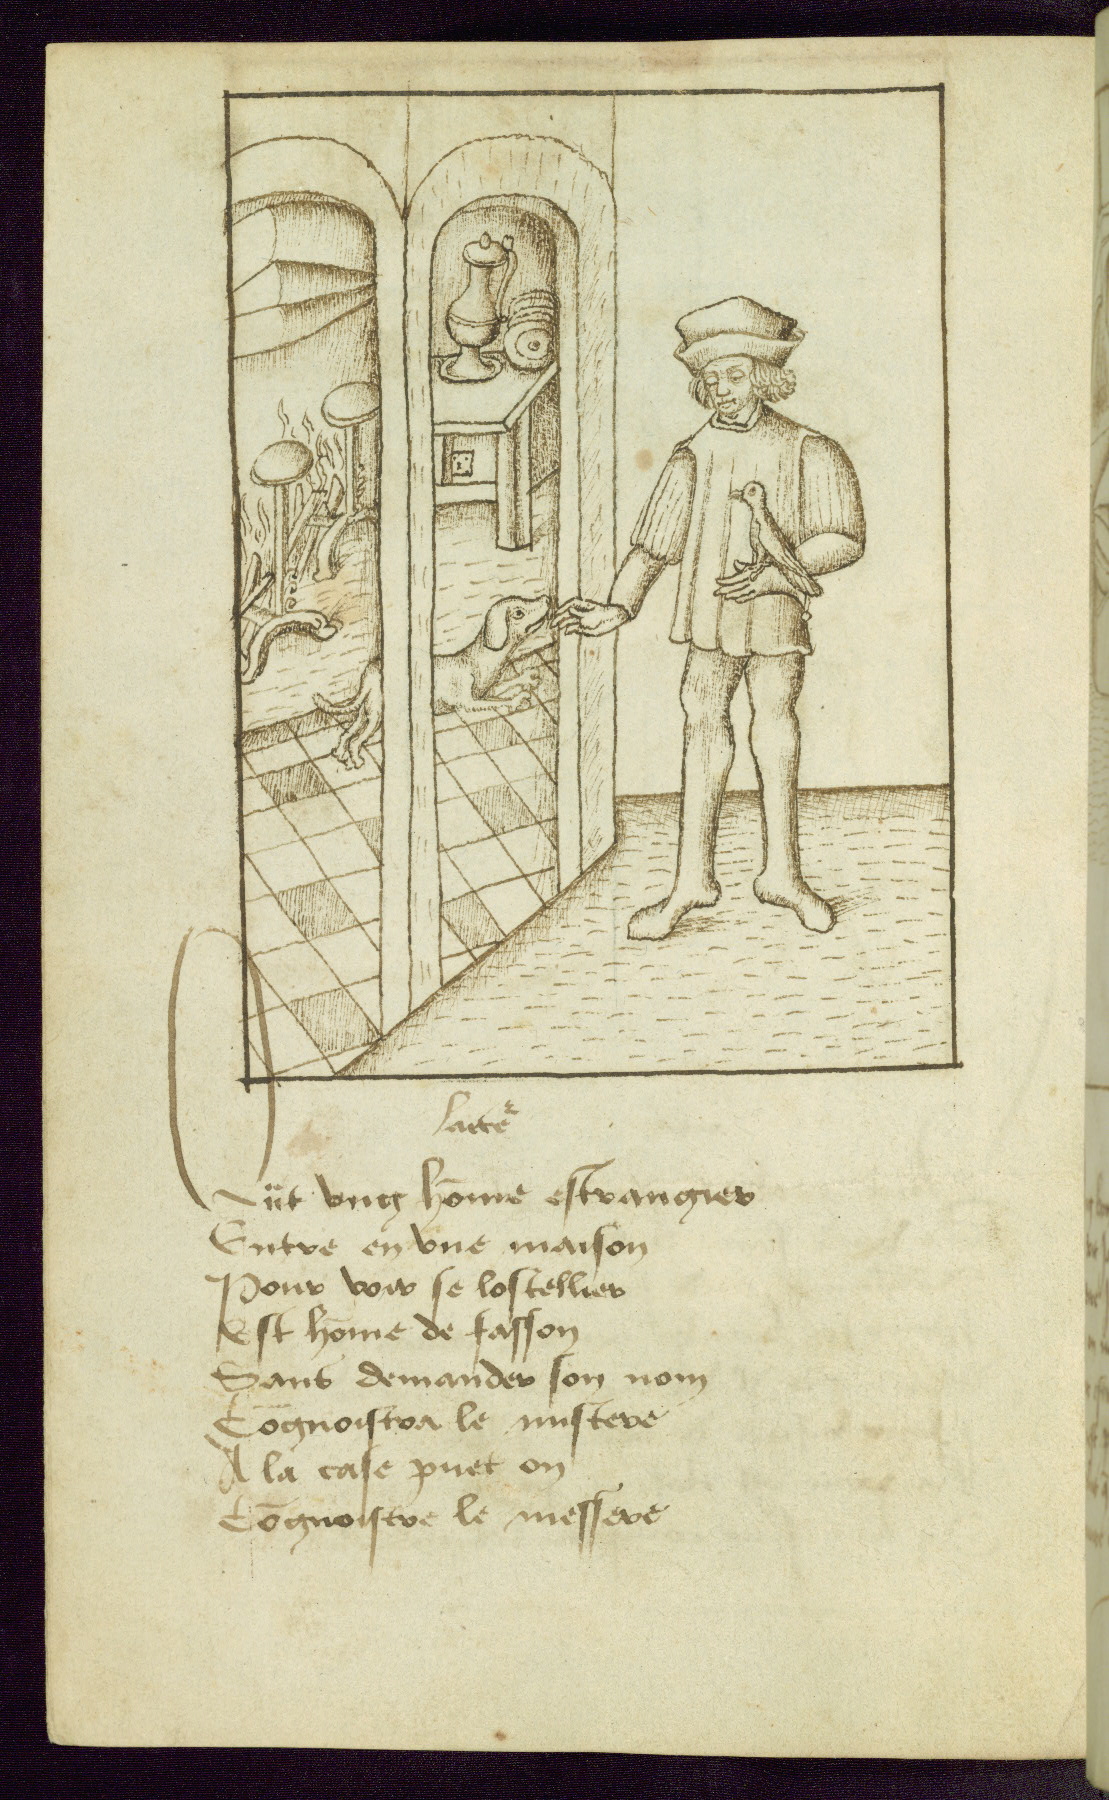 lacteʳ
Quāt vng hōme estrangier
Entre en vne maison
Pour voir se lostellier
Est hōme de fasson
Sans demander son nom
Cōgnoistra le mistere
A la case puet on
Cōgnoistre le messere